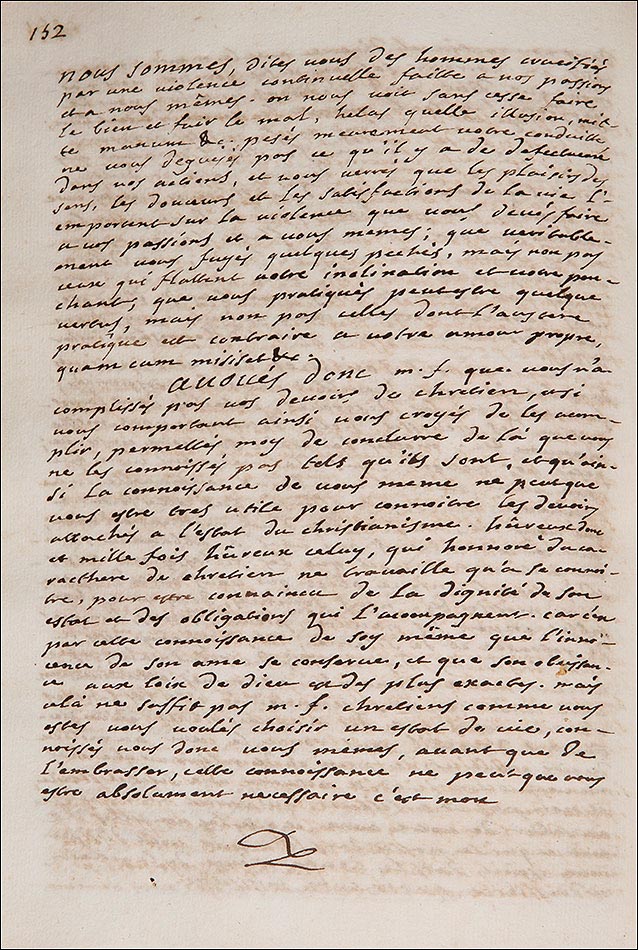 152
nous sommes, dites vous des hommes crucifiés
par une violence continuelle faitte a nos passions
et a nous mêmes. on nous voit sans cesse faire
le bien et fuir le mal, helas quelle illusion, mit-
te manum &c. pesés meurement votre conduitte
ne vous deguisés pas ce qu'il y a de defectueux
dans vos actions, et vous verrés que les plaisirs des
sens, les douceurs et les satisfactions de la vie l'-
emportent sur la violence que vous devés faire
a vos passions et a vous memes; que veritable-
ment vous fuyés quelques pechés, mais non pas
ceux qui flattent votre inclination et votre pen-
chant, que vous pratiqués peutestre quelque
vertus, mais non pas celles dont l'austere
pratique est contraire a votre amour propre,
quam cum misisset &c.
avoués donc m. f. que vous n'a
complissés pas vos devoirs de chretien, et si
vous comportant ainsi vous croyés de les acom-
plir, permettés moy de conclurre de là que vous
ne les connoissés pas tels qu'ils sont, et qu'ain-
si la connoissance de vous meme ne peut que
vous estre tres utile pour connoitre les devoirs
attachés a l'estat du christianisme. hûreux donc
et mille fois hûreux celuy, qui honnoré du ca-
racthere de chretien ne travaille qu'a se connoi-
tre, pour estre convaincu de la dignité de son
estat et des obligations qui l'acompagnent. car c'en
par cette connoissance de soy même que l'inno-
cence de son ame se conserve, et que son obeissan-
ce aux loix de dieu est des plus exactes. mais
cela ne suffit pas m. f. chretiens comme vous
estes vous voulés choisir un estat de vie, con-
noissés vous donc vous memes, avant que de
l'embrasser, cette connoissance ne peut que vous
estre absolument necessaire c'est mon